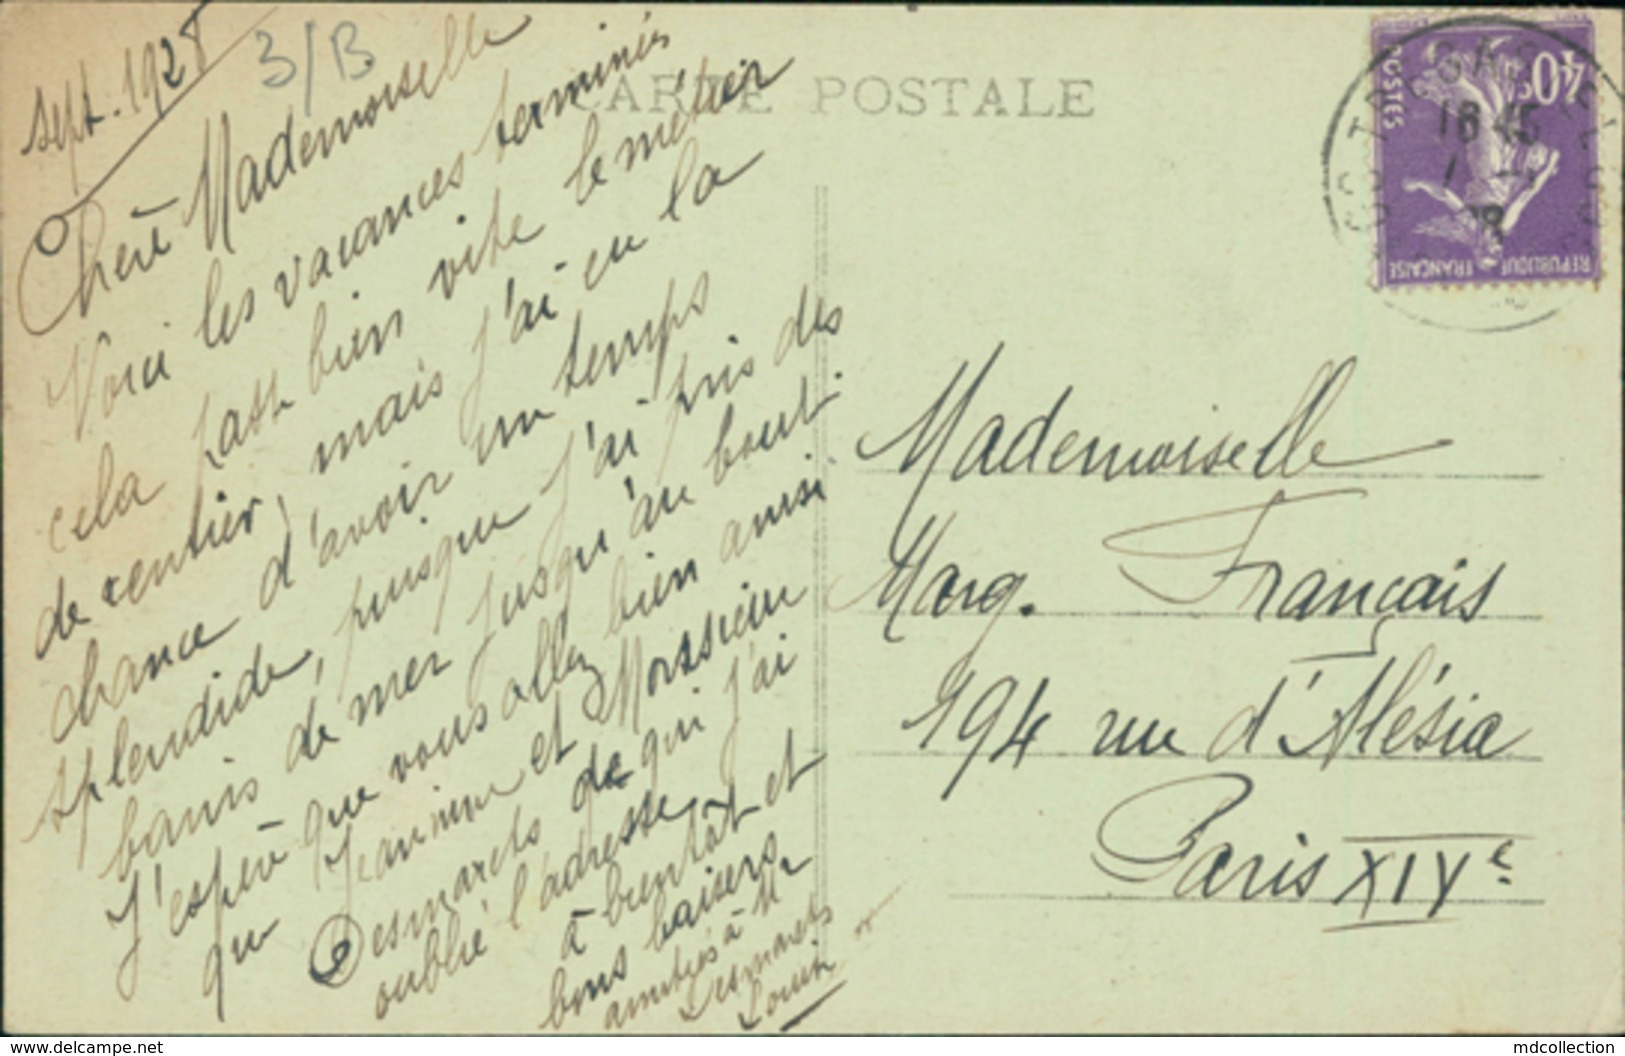 sept. 1928
3/B
CARTE POSTALE
Chère Mademoiselle
Voici les vacances terminés
cela passe bien vite le métier
de rentier, mais j'ai eu la
chance d'avoir un temps
splendide, puisque j'ai pris des
bains de mer jusqu'au bout.
J'espère que vous allez bien ainsi
que Jeannine et Monsieur
Desmarets de qui j'ai
oublié l'adresse
à bientôt et
bons baisers
amitiés à Mr
Desmarets
Louise
40c
POSTES
REPUBLIQUE FRANÇAISE
18 45
28
Mademoiselle
Marg. Français
194 rue d'Alésia
Paris XIVe
https://www.delcampe.net
mdcollection